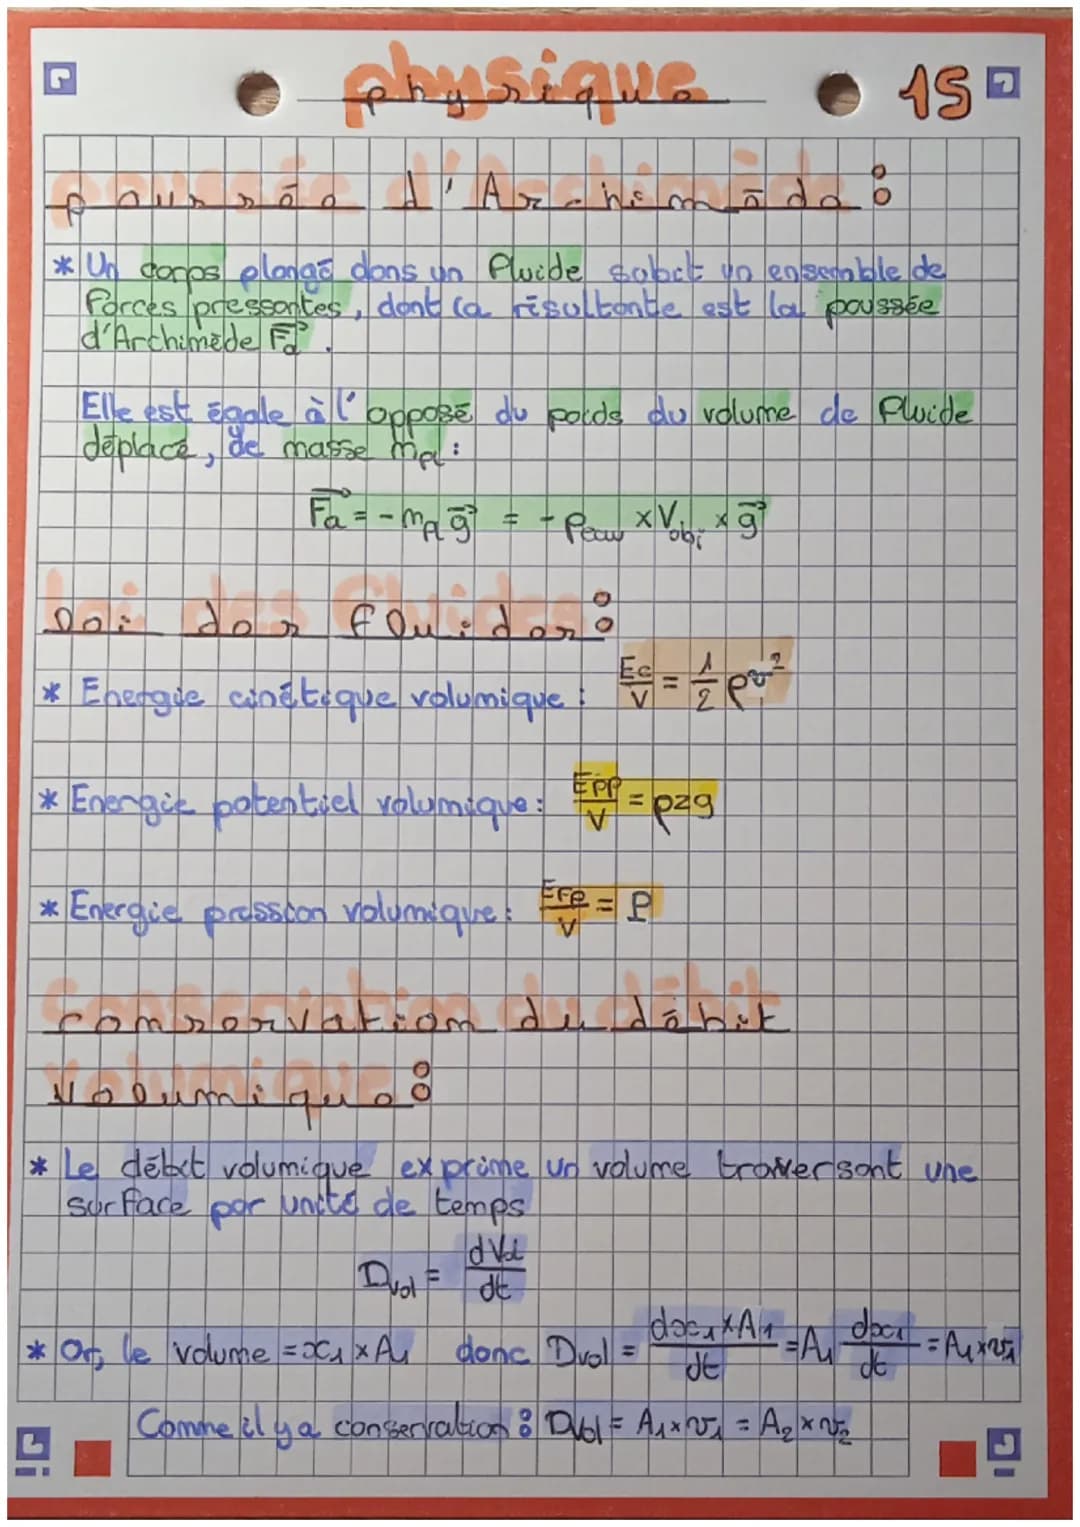 physique
15
poussée d'Archimède :
* Un corps plongé dans un fluide subit un ensemble de
forces pressantes, dont la résultante est la poussée
d'Archimède F⃗a.
Elle est égale à l'opposé du poids du volume de fluide
déplacé, de masse mfl :
F⃗a = - mfl g⃗ = - ρeau × Vobj × g⃗
Loi des fluides :
* Energie cinétique volumique : Ec/V = 1/2 ρv²
* Energie potentiel volumique : Epp/V = ρzg
* Energie pression volumique : EFP/V = P
Conservation du débit
volumique :
* Le débit volumique exprime un volume traversant une
surface par unité de temps
Dvol = dVol/dt
* Or, le volume = x₁ × A₁ donc Dvol = dx₁×A₁/dt = A₁ dx₁/dt = A₁×v₁
Comme il y a conservation : Dvol = A₁×v₁ = A₂×v₂